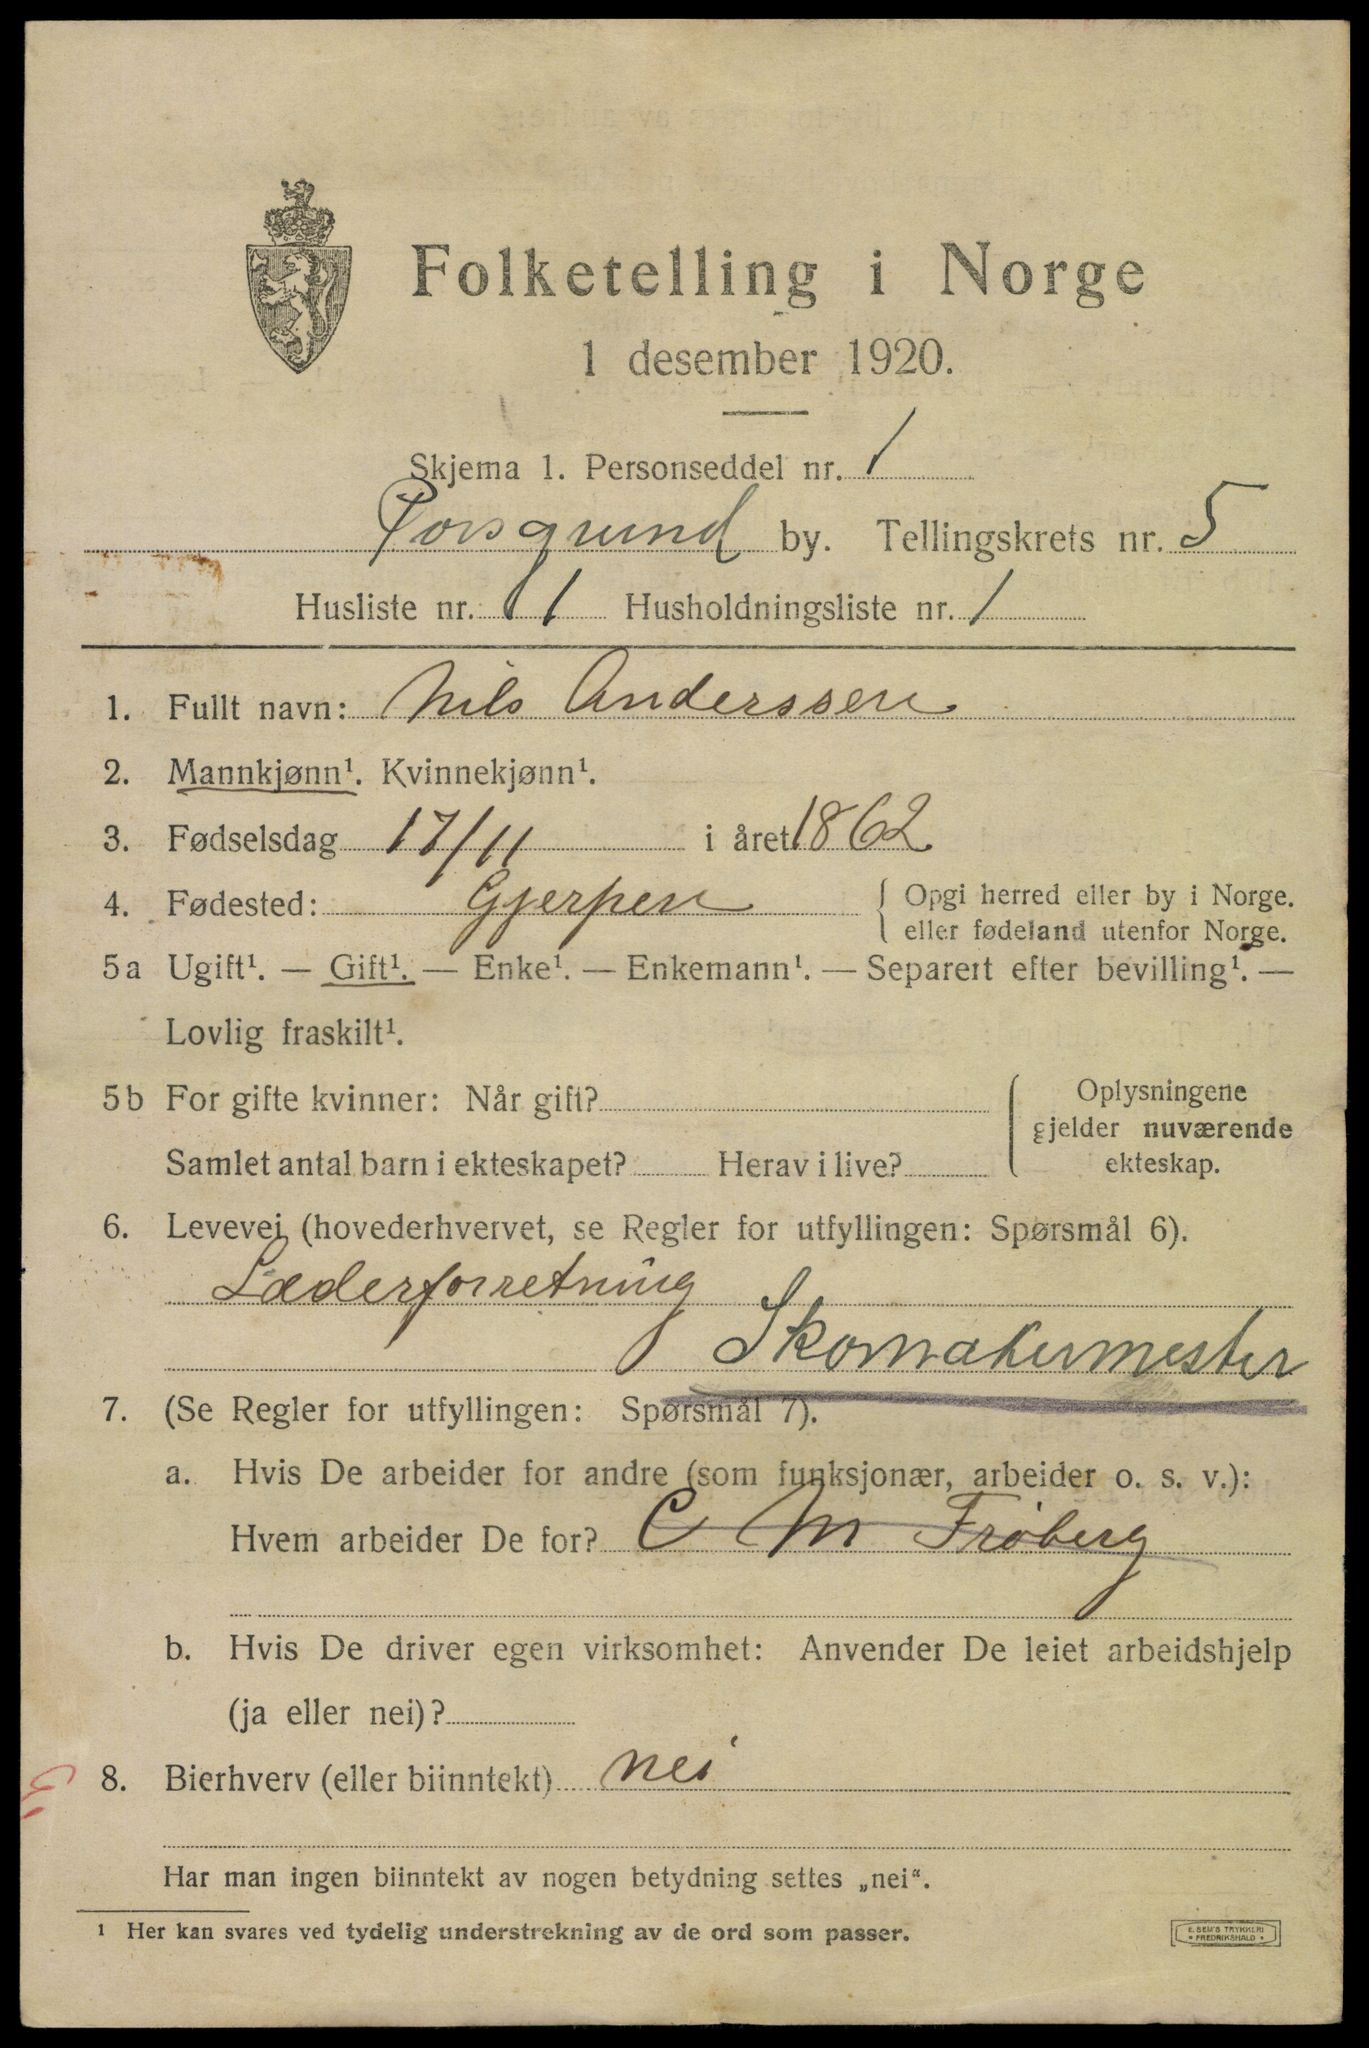 Folketelling i Norge
1 desember 1920.
Skjema 1. Personseddel nr. 1
Porsgrund by. Tellingskrets nr. 5
Husliste nr. 1 Husholdningsliste nr. 1
1. Fullt navn: Nils Anderssen
2. Mannkjønn¹. Kvinnekjønn¹.
3. Fødselsdag 17/11 i året 1862
4. Fødested: Gjerpen { Opgi herred eller by i Norge.
eller fødeland utenfor Norge.
5a Ugift¹. — Gift¹. — Enke¹. — Enkemann¹. — Separert efter bevilling¹. —
Lovlig fraskilt¹.
5b For gifte kvinner: Når gift? Oplysningene
gjelder nuværende
Samlet antal barn i ekteskapet? Herav i live? ekteskap.
6. Levevei (hovederhvervet, se Regler for utfyllingen: Spørsmål 6).
Læderforretning
Skomakermester
7. (Se Regler for utfyllingen: Spørsmål 7).
a. Hvis De arbeider for andre (som funksjonær, arbeider o. s. v.):
Hvem arbeider De for? C M Frøberg
b. Hvis De driver egen virksomhet: Anvender De leiet arbeidshjelp
(ja eller nei)?
8. Bierhverv (eller biinntekt) nei
Har man ingen biinntekt av nogen betydning settes „nei“.
¹ Her kan svares ved tydelig understrekning av de ord som passer.
E. SEM'S TRYKKERI
FREDRIKSHALD